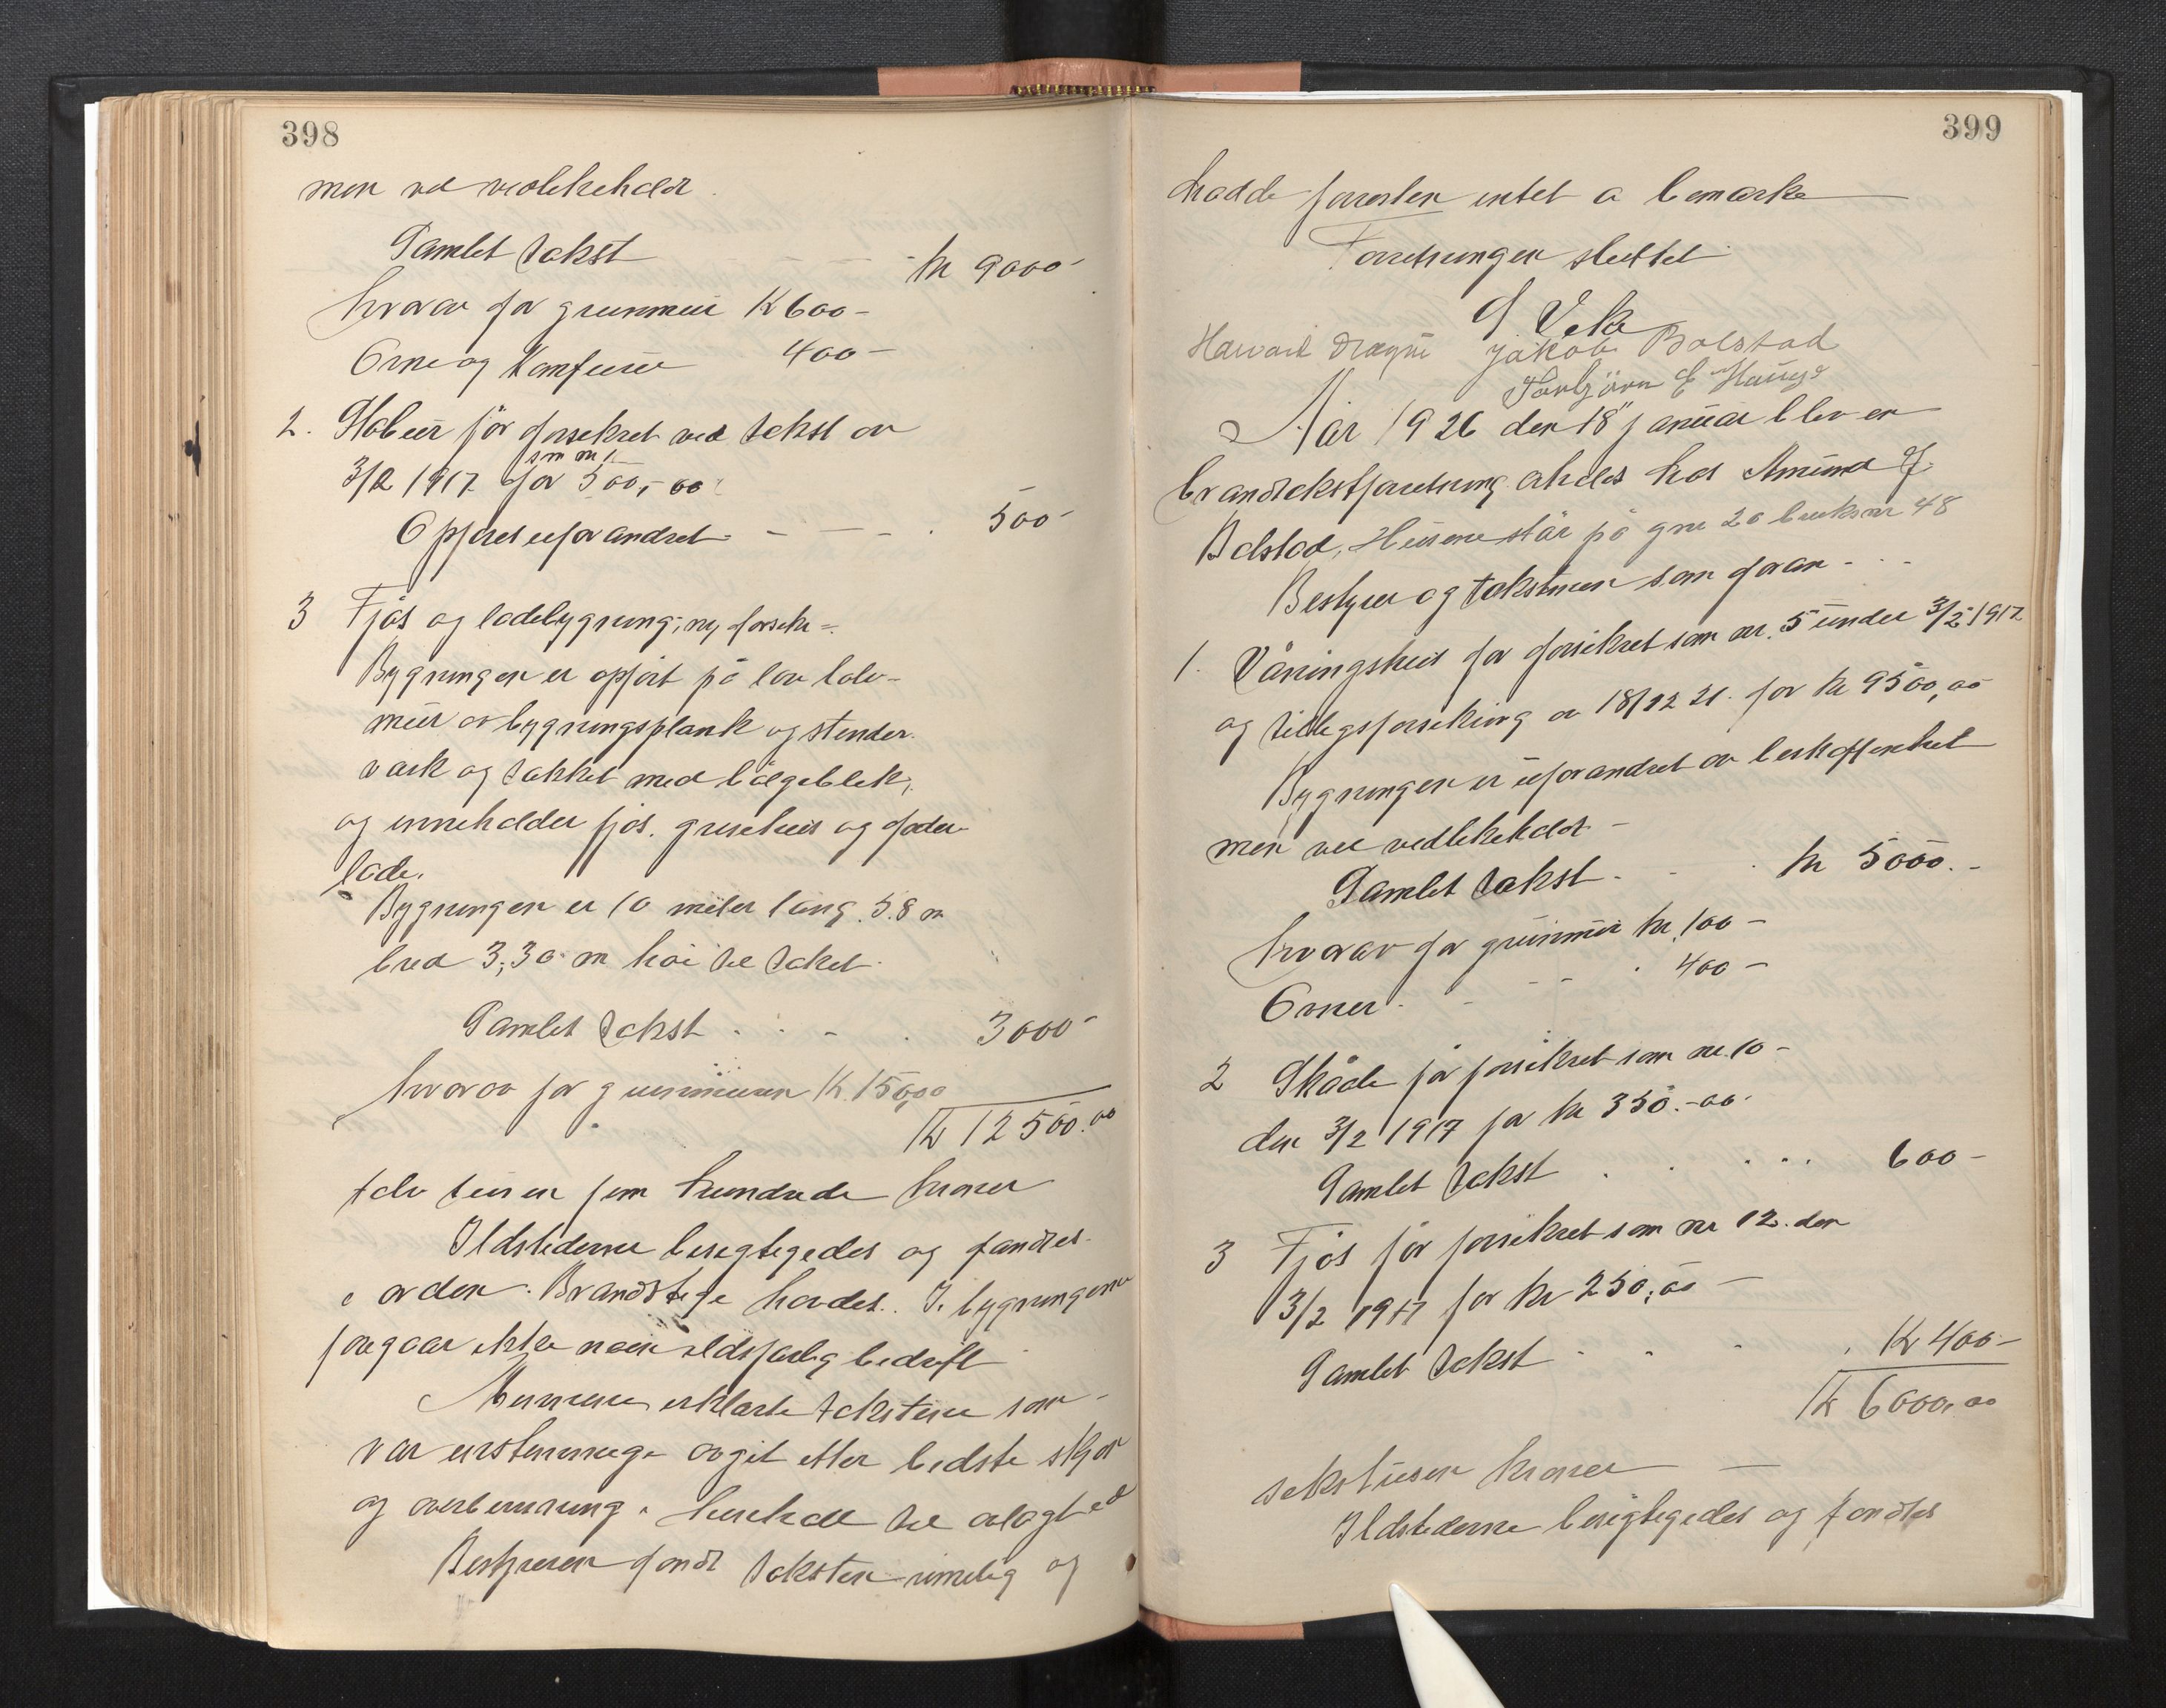 398
men vel vedlikeholdt.
Samlet takst - - - kr 9000-
hvorav for grunmur K 600-
Ovne og Komfurer 400-
2. Stabur før forsekret ved takst av
som nr 1
3/2 1917 for 500,-00
Opføres uforandret - - - 500-
3 Fjøs og ladebygning; ny forsekr =.
Bygningen er opført på lav labr-
mur av bygningsplank og stender-
værk og takket med bølgeblek,
og inneholder fjøs. grisehus og foder-
lade.
Bygningen er 10 meter lang. 5.8 m
bred 3,30 m høi til taket.
Samlet takst . . - . 3000-
hvorav for grunmuren K. 150,00
Kr 12500.00
tolv tusen fem hundrede kroner
Ildstederne besigtigedes og fandtes
i orden. Brandstige havdes. I bygningerne
foregaar ikke noen ildsfarlig bedrift
Mennene erklærte taksterne som
var enstemmige avgit efter bedste skjøn
og overbevisning i henhold til avlagt ed
Bestyreren fandt taksten rimelig og
399
hadde forresten intet a bemærke
Forretningen sluttet
J. Veka
Havard Dragne Jakob Bolstad
Torbjörn E Hauge
Aar 1926 den 18" januar blev en
brandtakstforretning avholdes hos Amund J.
Bolstad, Husene står på gnr 20 bruksnr 48
Bestyrer og takstmen som foran - . -
1. Våningshus før forsikret som nr. 5 under 3/2 1917
og tillegsforsikring av 18/12 21. for kr 9500,00
Bygningen er uforandret av beskaffenhet
men vel vedlikeholdt -
Samlet takst . - . kr 5000.-
hvorav for grunmur kr. 100 -
Ovner . - - - . 400 -
2 Skåde før forsikret som nr. 10 -
den 3/2 1917 for kr 350.-00.
Samlet takst . . . . . 600 -
3 Fjøs før forsikret som nr 12. den
3/2 1917 for kr 250,00 -
Samlet takst - - - . Kr 400-
Kr 6000,00
sekstusen kroner -
Ildstederne besigtigedes og fandtes